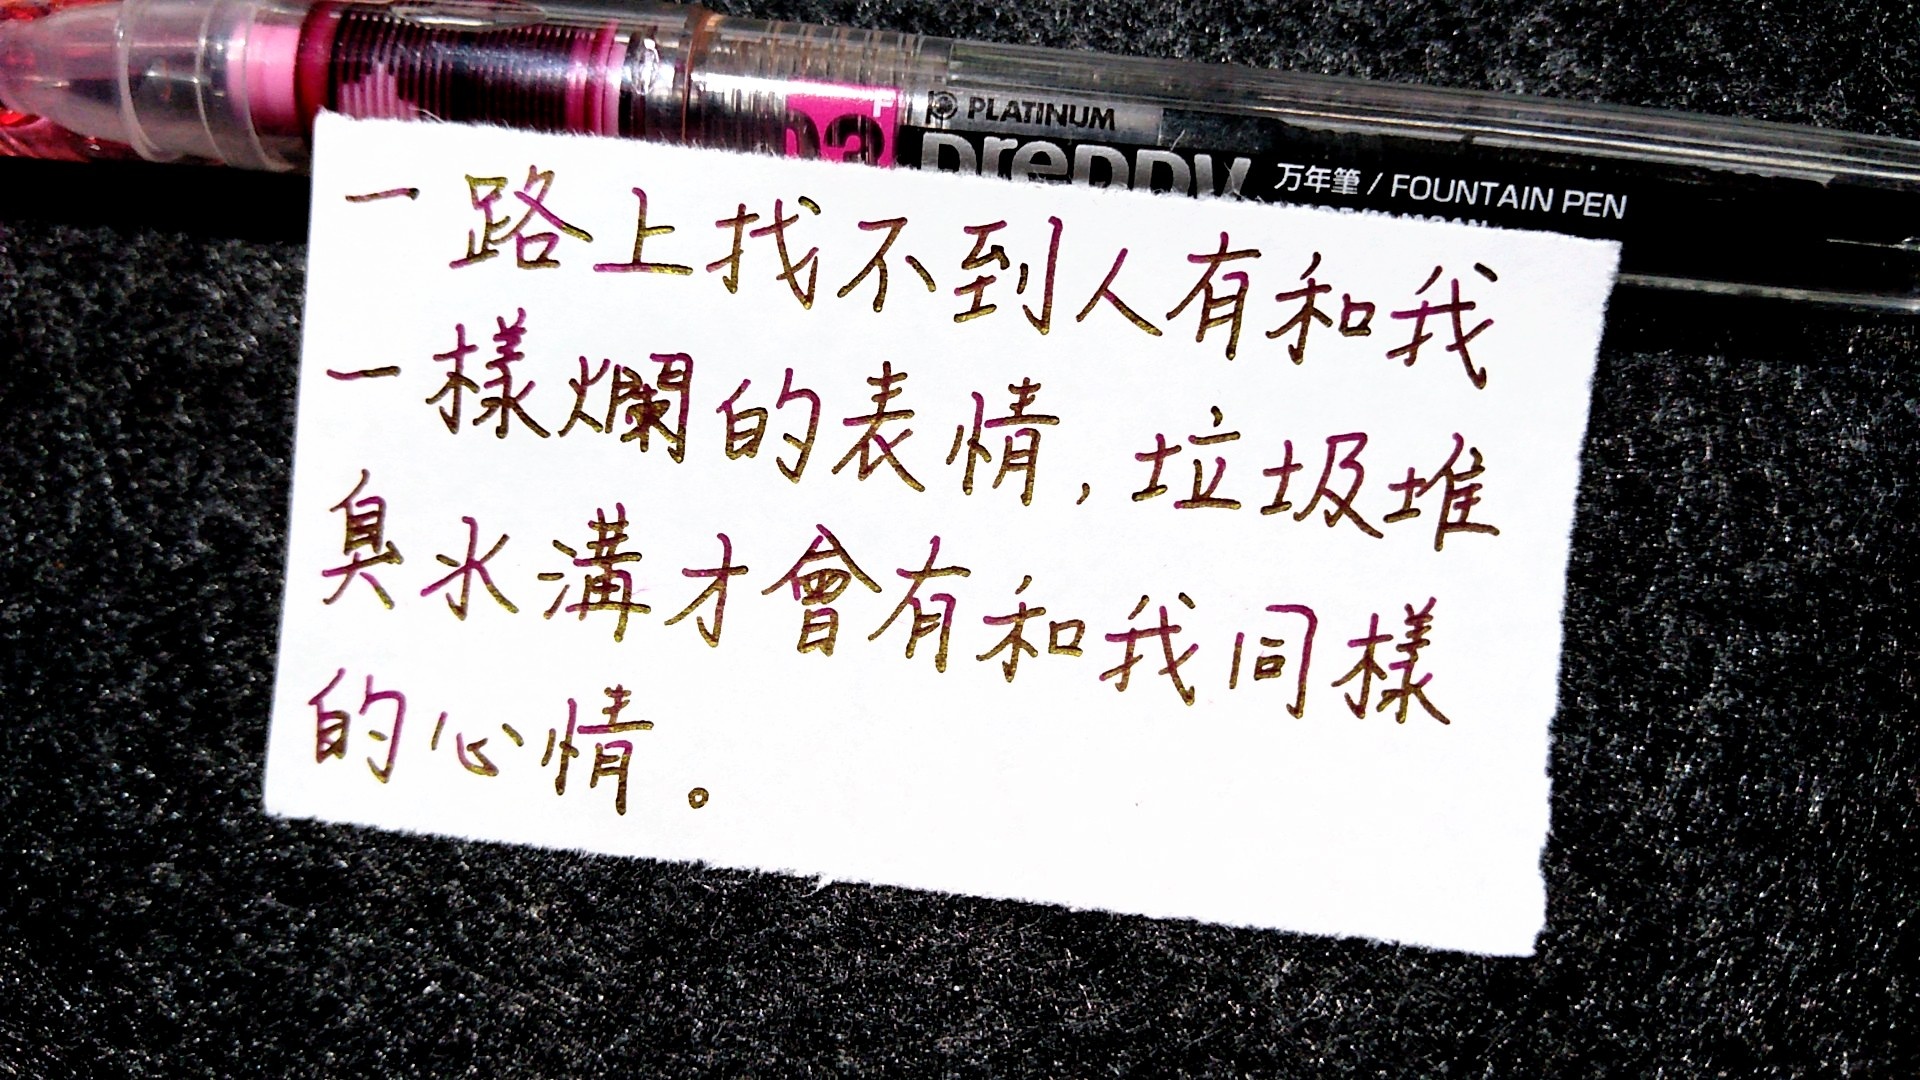 PLATINUM
preppy 万年筆 / FOUNTAIN PEN
03 F
一路上找不到人有和我
一樣爛的表情,垃圾堆
臭水溝才會有和我同樣
的心情。